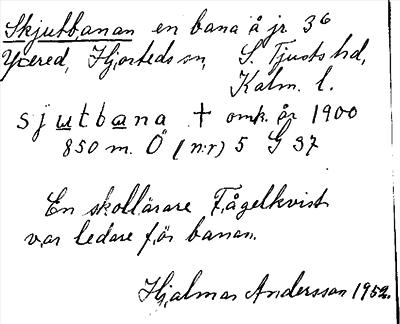 Skjutbanan en bana å jr 36
Yxered, Hjorteds sn, S. Tjusts hd,
Kalm. l.
sjutbana † omk. år 1900
850 m. Ö (n:r) 5 G 37
En skollärare Fågelkvist
var ledare för banan.
Hjalmar Andersson 1952.